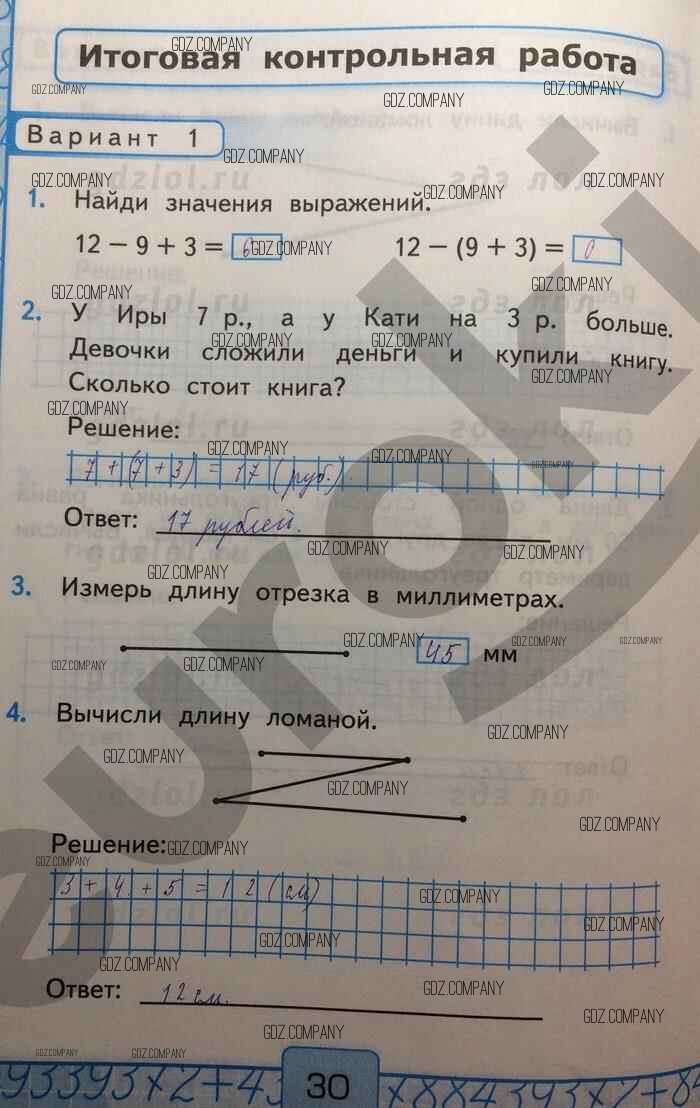 Итоговая контрольная работа
Вариант 1
1. Найди значения выражений.
12 − 9 + 3 = 6 12 − (9 + 3) = 0
2. У Иры 7 р., а у Кати на 3 р. больше.
Девочки сложили деньги и купили книгу.
Сколько стоит книга?
Решение:
7 + (7 + 3) = 17 (руб.).
Ответ: 17 рублей.
3. Измерь длину отрезка в миллиметрах.
45 мм
4. Вычисли длину ломаной.
Решение:
3 + 4 + 5 = 12 (см)
Ответ: 12 см.
30
GDZ.COMPANY